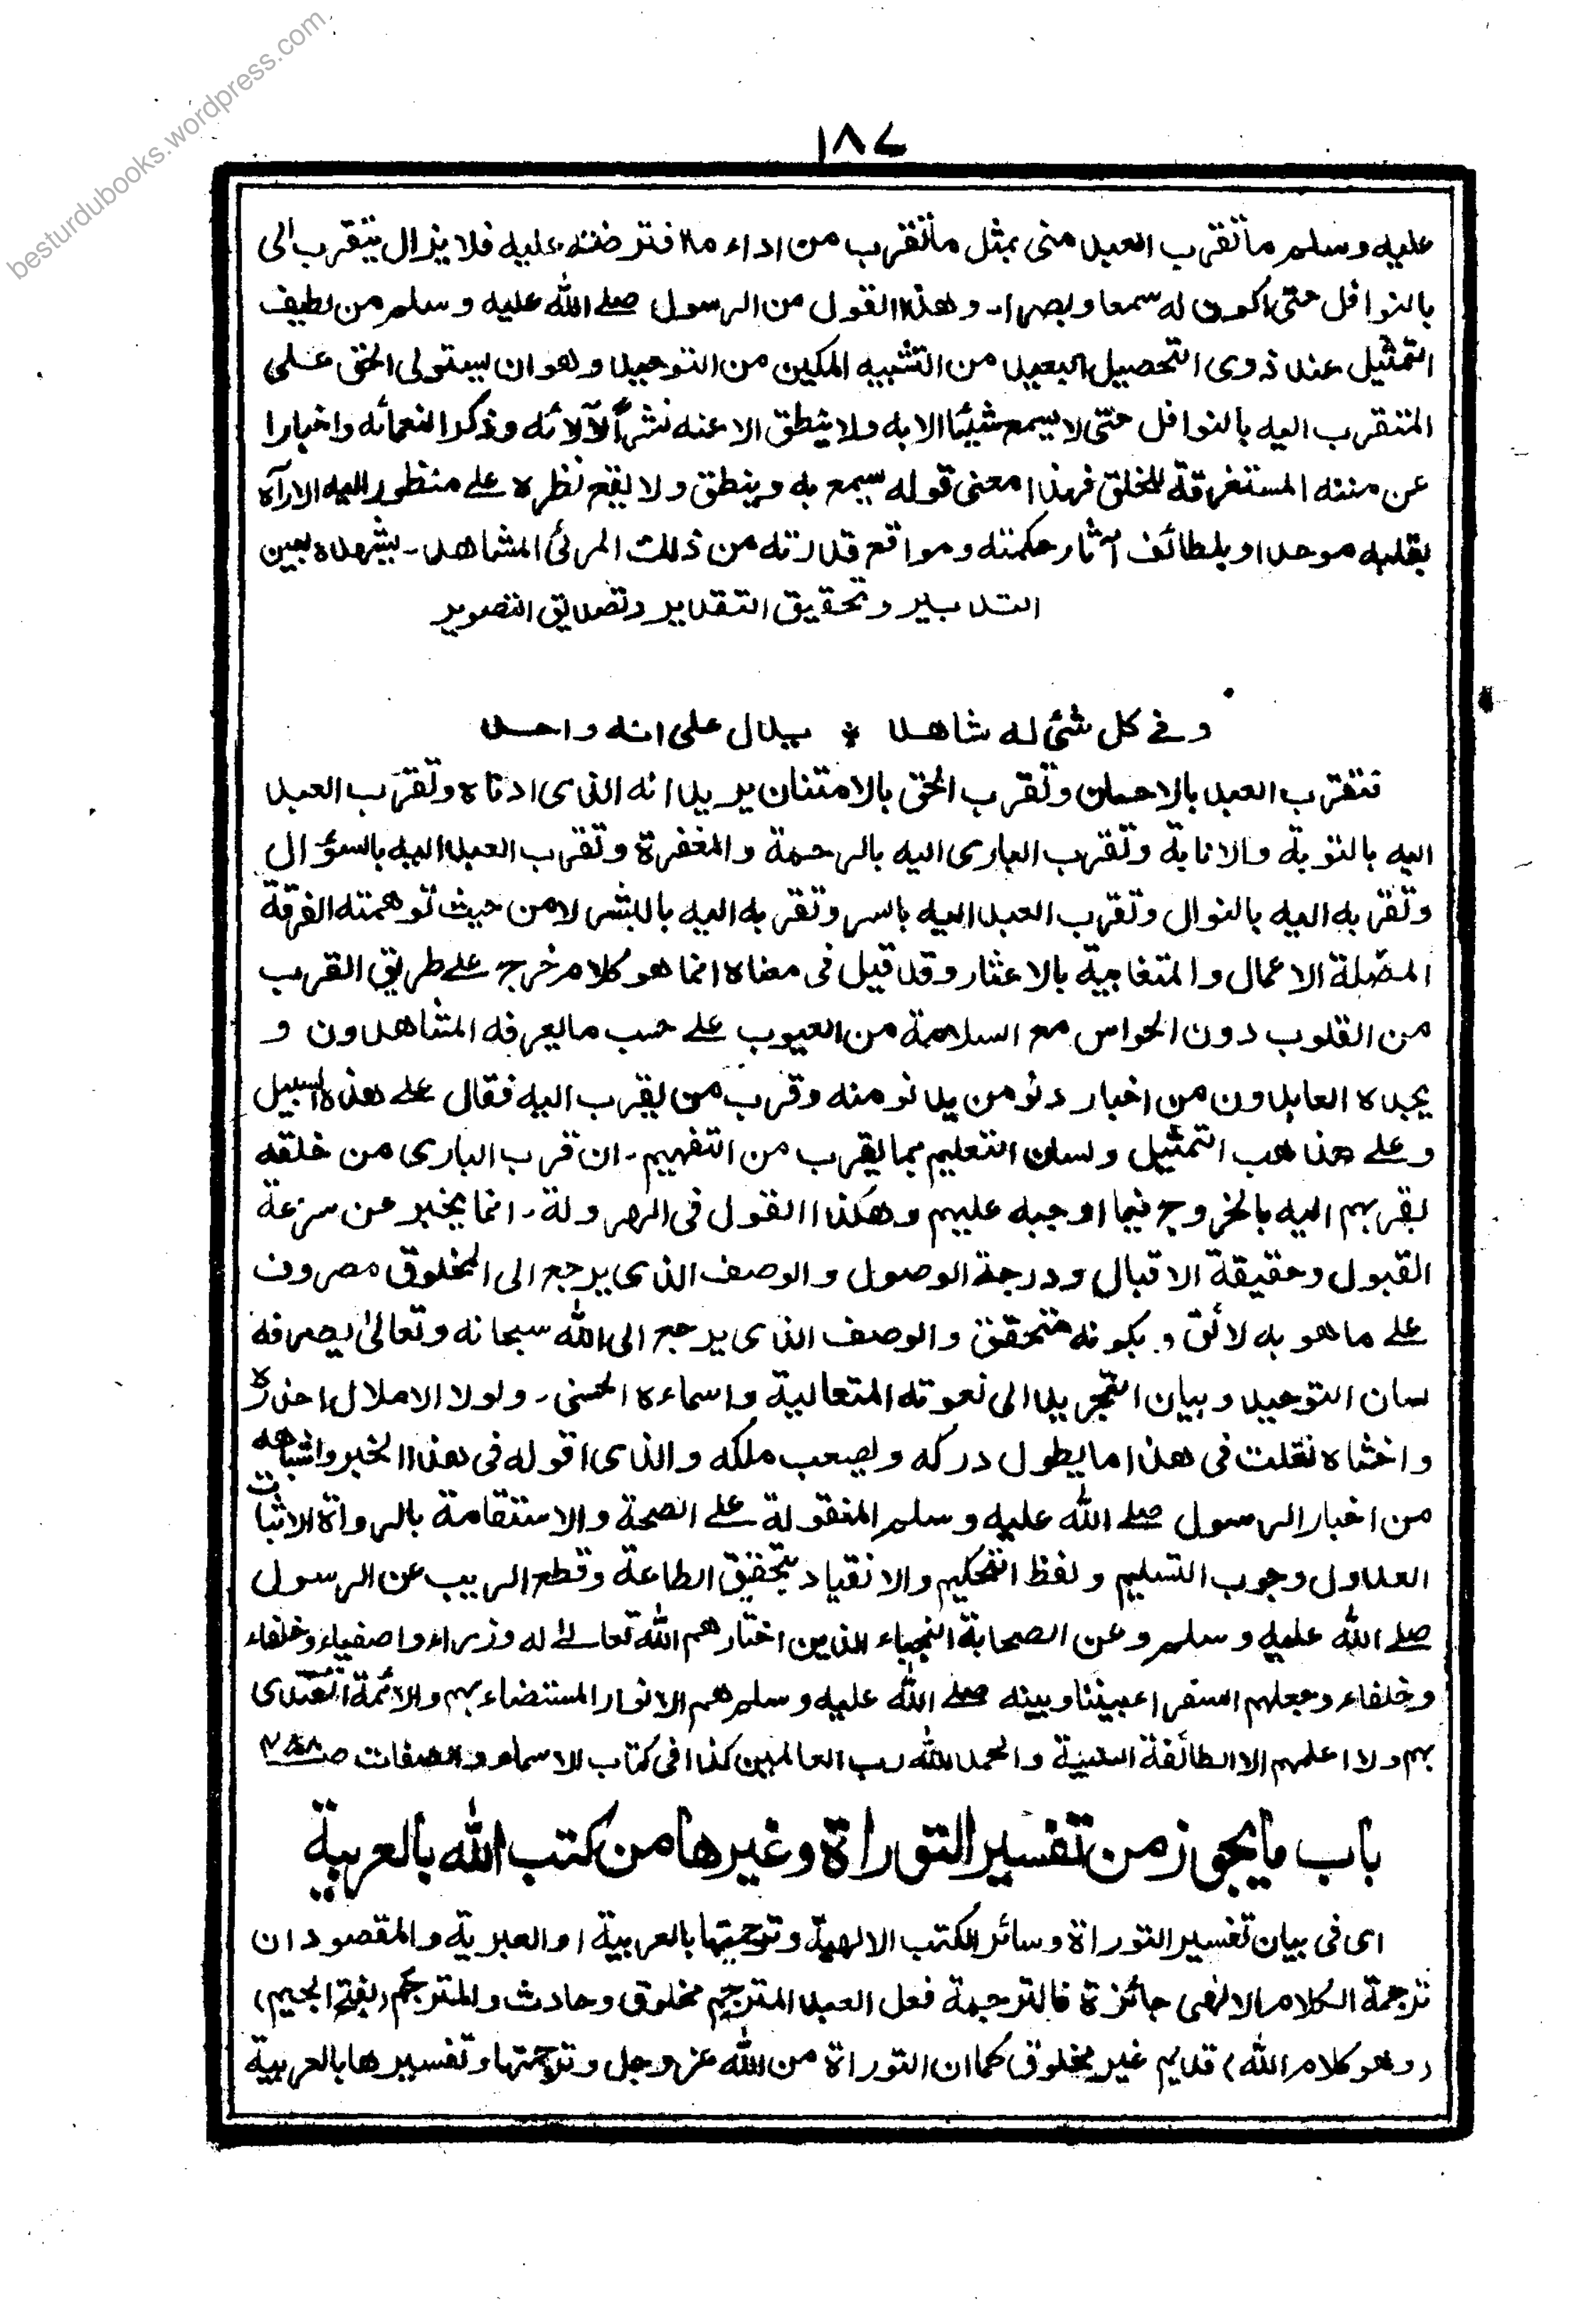 besturdubooks.wordpress.com
١٨٧
عليه وسلم ما تقرب العبد منى بمثل ما تقرب من اداء ما افترضته عليه فلا يزال يتقرب الى
بالنوافل حتى اكون له سمعا وبصرا۔ وهذا القول من الرسول صلے اللّٰه عليه وسلم من لطيف
التمثيل عند ذوى التحصيل البعيد من التشبيه المكين من التوحيد وهو ان يستولى الحق على
المتقرب اليه بالنوافل حتى لا يسمع شيئا الا به ولا ينطق الا عنه نشراً لآلائه وذكرا لنعمائه واخبارا
عن مننه المستغرقة للخلق فهذا معنى قوله سيمع به وينطق ولا يقع نظره علے منظور اليه الا رآه
بقلبه موحدا وبلطائف آثار حكمته ومواقع قدرته من ذلك المرئ المشاهد۔ يشهده بعين
التدبير وتحقيق التقدير وتصديق التصوير
وفے كل شئ له شاهد * يدل على انه واحد
فتقرب العبد بالاحسان وتقرب الحق بالامتنان يريد انه الذى ادناه وتقرّب العبد
اليه بالتوبة والانابة وتقرب البارى اليه بالرحمة والمغفرة وتقرب العبد اليه بالسؤال
وتقربه اليه بالنوال وتقرب العبد اليه بالسر وتقربه اليه بالبشر لا من حيث توهمته الفرقة
المضلة الاعمال والمتغابية بالاعثار وقد قيل فى معناه انما هو كلام خرج علے طريق القرب
من القلوب دون الحواس مع السلامة من العيوب علے حسب ما يعرفه المشاهدون و
يجده العابدون من اخبار دنو من يدنو منه وقرب من يقرب اليه فقال علے هذه السبيل
وعلے مذاهب التمثيل ولسان التعليم بما يقرب من التفهيم۔ ان قرب البارى من خلقه
بقربهم اليه بالخروج فيما اوجبه عليهم وهكذا القول فى الهرولة۔ انما يخبر عن سرعة
القبول وحقيقة الاقبال ودرجة الوصول والوصف الذى يرجع الى المخلوق مصروف
علے ما هو به لائق و بكونه متحقق والوصف الذى يرجع الى اللّٰه سبحانه وتعالىٰ يصرفه
لسان التوحيد وبيان التجريد الى نعوته المتعالية واسماءه الحسنى۔ ولولا الاملال احذره
واخشاه نقلت فى هذا ما يطول دركه ويصعب ملكه والذى اقوله فى هذا الخبر واشباهه
من اخبار الرسول صلے اللّٰه عليه وسلم المنقولة علے الصحة والاستقامة بالرواة الاثبات
العدول وجوب التسليم ولفظ التحكيم والانقياد بتحقيق الطاعة وقطع الريب عن الرسول
صلے اللّٰه عليه وسلم وعن الصحابة النجباء الذين اختارهم اللّٰه تعالےٰ له وزراء واصفياء وخلفاء
وخلفاء وجعلهم السفراء بيننا وبينه صلے اللّٰه عليه وسلم هم الانوار المستضاء بهم والائمة المقتدى
بهم ولا اعلمهم الا الطائفة السنية والحمد للّٰه رب العالمين كذا فى كتاب الاسماء والصفات
باب ما يجوز من تفسير التوراة وغيرها من كتب اللّٰه بالعربية
اى فى بيان تفسير التوراة وسائر الكتب الالهية وترجمتها بالعربية او العبرية والمقصود ان
ترجمة الكلام الالهى جائزة فالترجمة فعل العبد المترجم مخلوق وحادث والمترجم (بفتح الجيم)
(وهو كلام اللّٰه) قديم غير مخلوق كما ان التوراة من اللّٰه عز وجل وترجمتها وتفسيرها بالعربية